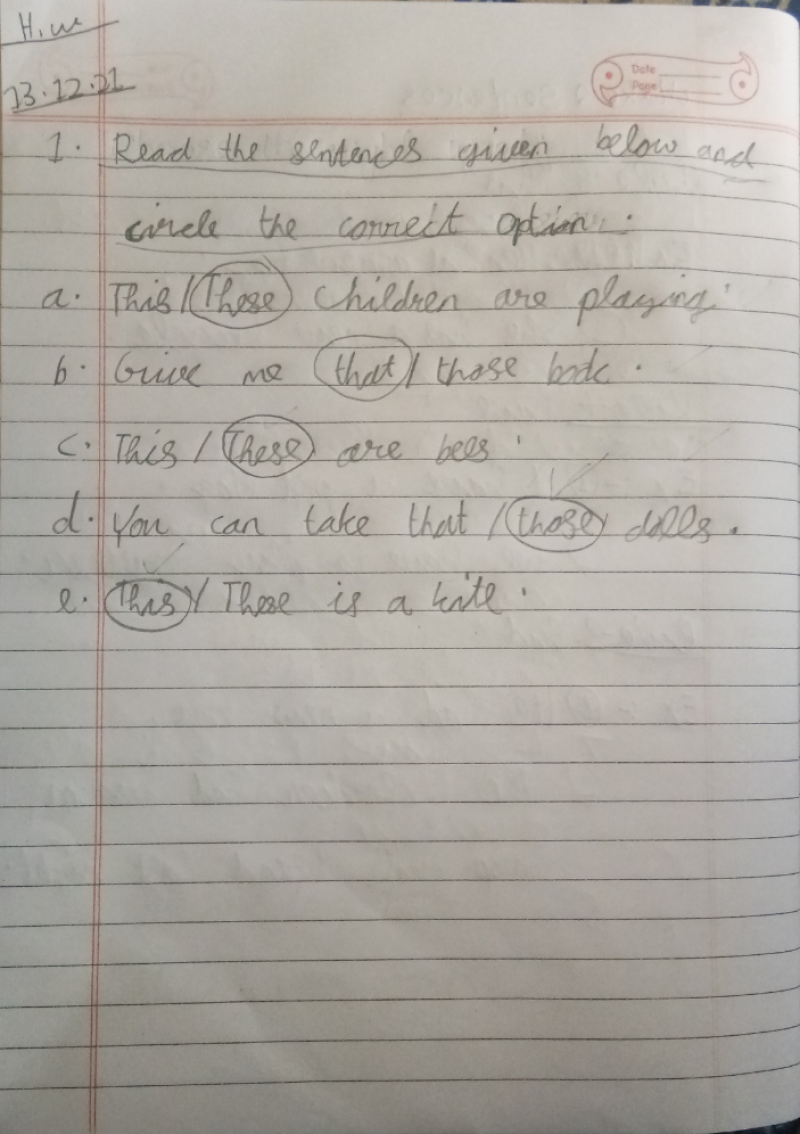 H.w
13.12.21
Date
Page
1. Read the sentences given below and
circle the correct option.
a. This / These children are playing.
b. Give me that / those book.
c. This / These are bees.
d. You can take that / those dolls.
e. This / These is a kite.